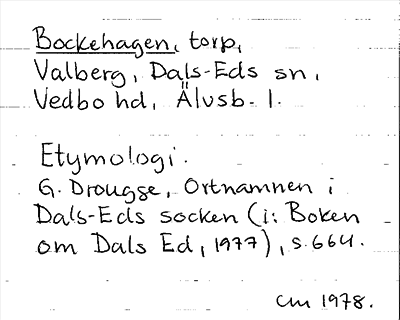 Bockehagen, torp,
Valberg, Dals-Eds sn,
Vedbo hd, Älvsb. l.
Etymologi.
G. Drougge, Ortnamnen i
Dals-Eds socken (i: Boken
om Dals Ed, 1977), s. 664.
CM 1978.